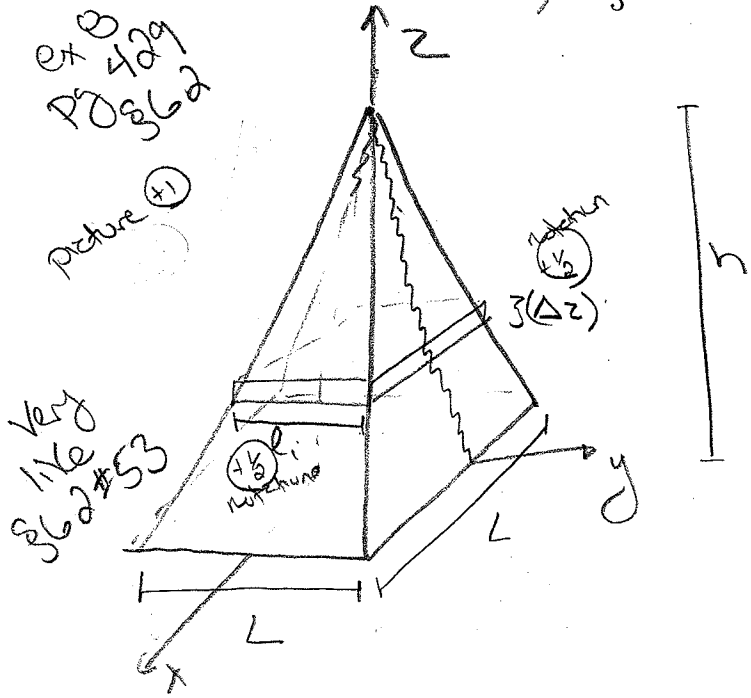 ex 8
pg 429
§62
z
picture +1
notation
+½
}(Δz)
h
very
like
§62 #53
+½ lᵢ
notation
y
L
L
x